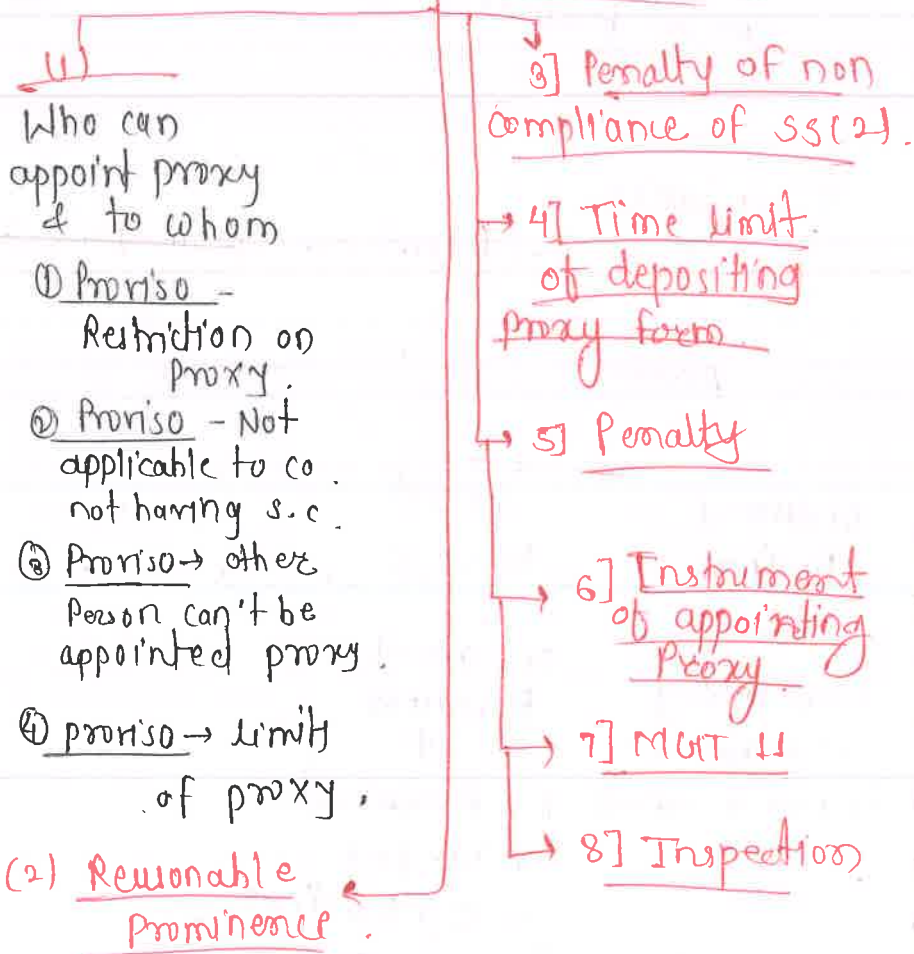 (1)
Who can
appoint proxy
& to whom
① Proviso -
Restriction on
Proxy.
② Proviso - Not
applicable to co.
not having s.c.
③ Proviso → other
Person can't be
appointed proxy.
④ proviso → limit
of proxy.
(2) Reasonable
Prominence.
3] Penalty of non
compliance of ss(2).
→ 4] Time limit
of depositing
proxy form.
→ 5] Penalty
→ 6] Instrument
of appointing
Proxy.
→ 7] MGT 11
→ 8] Inspection